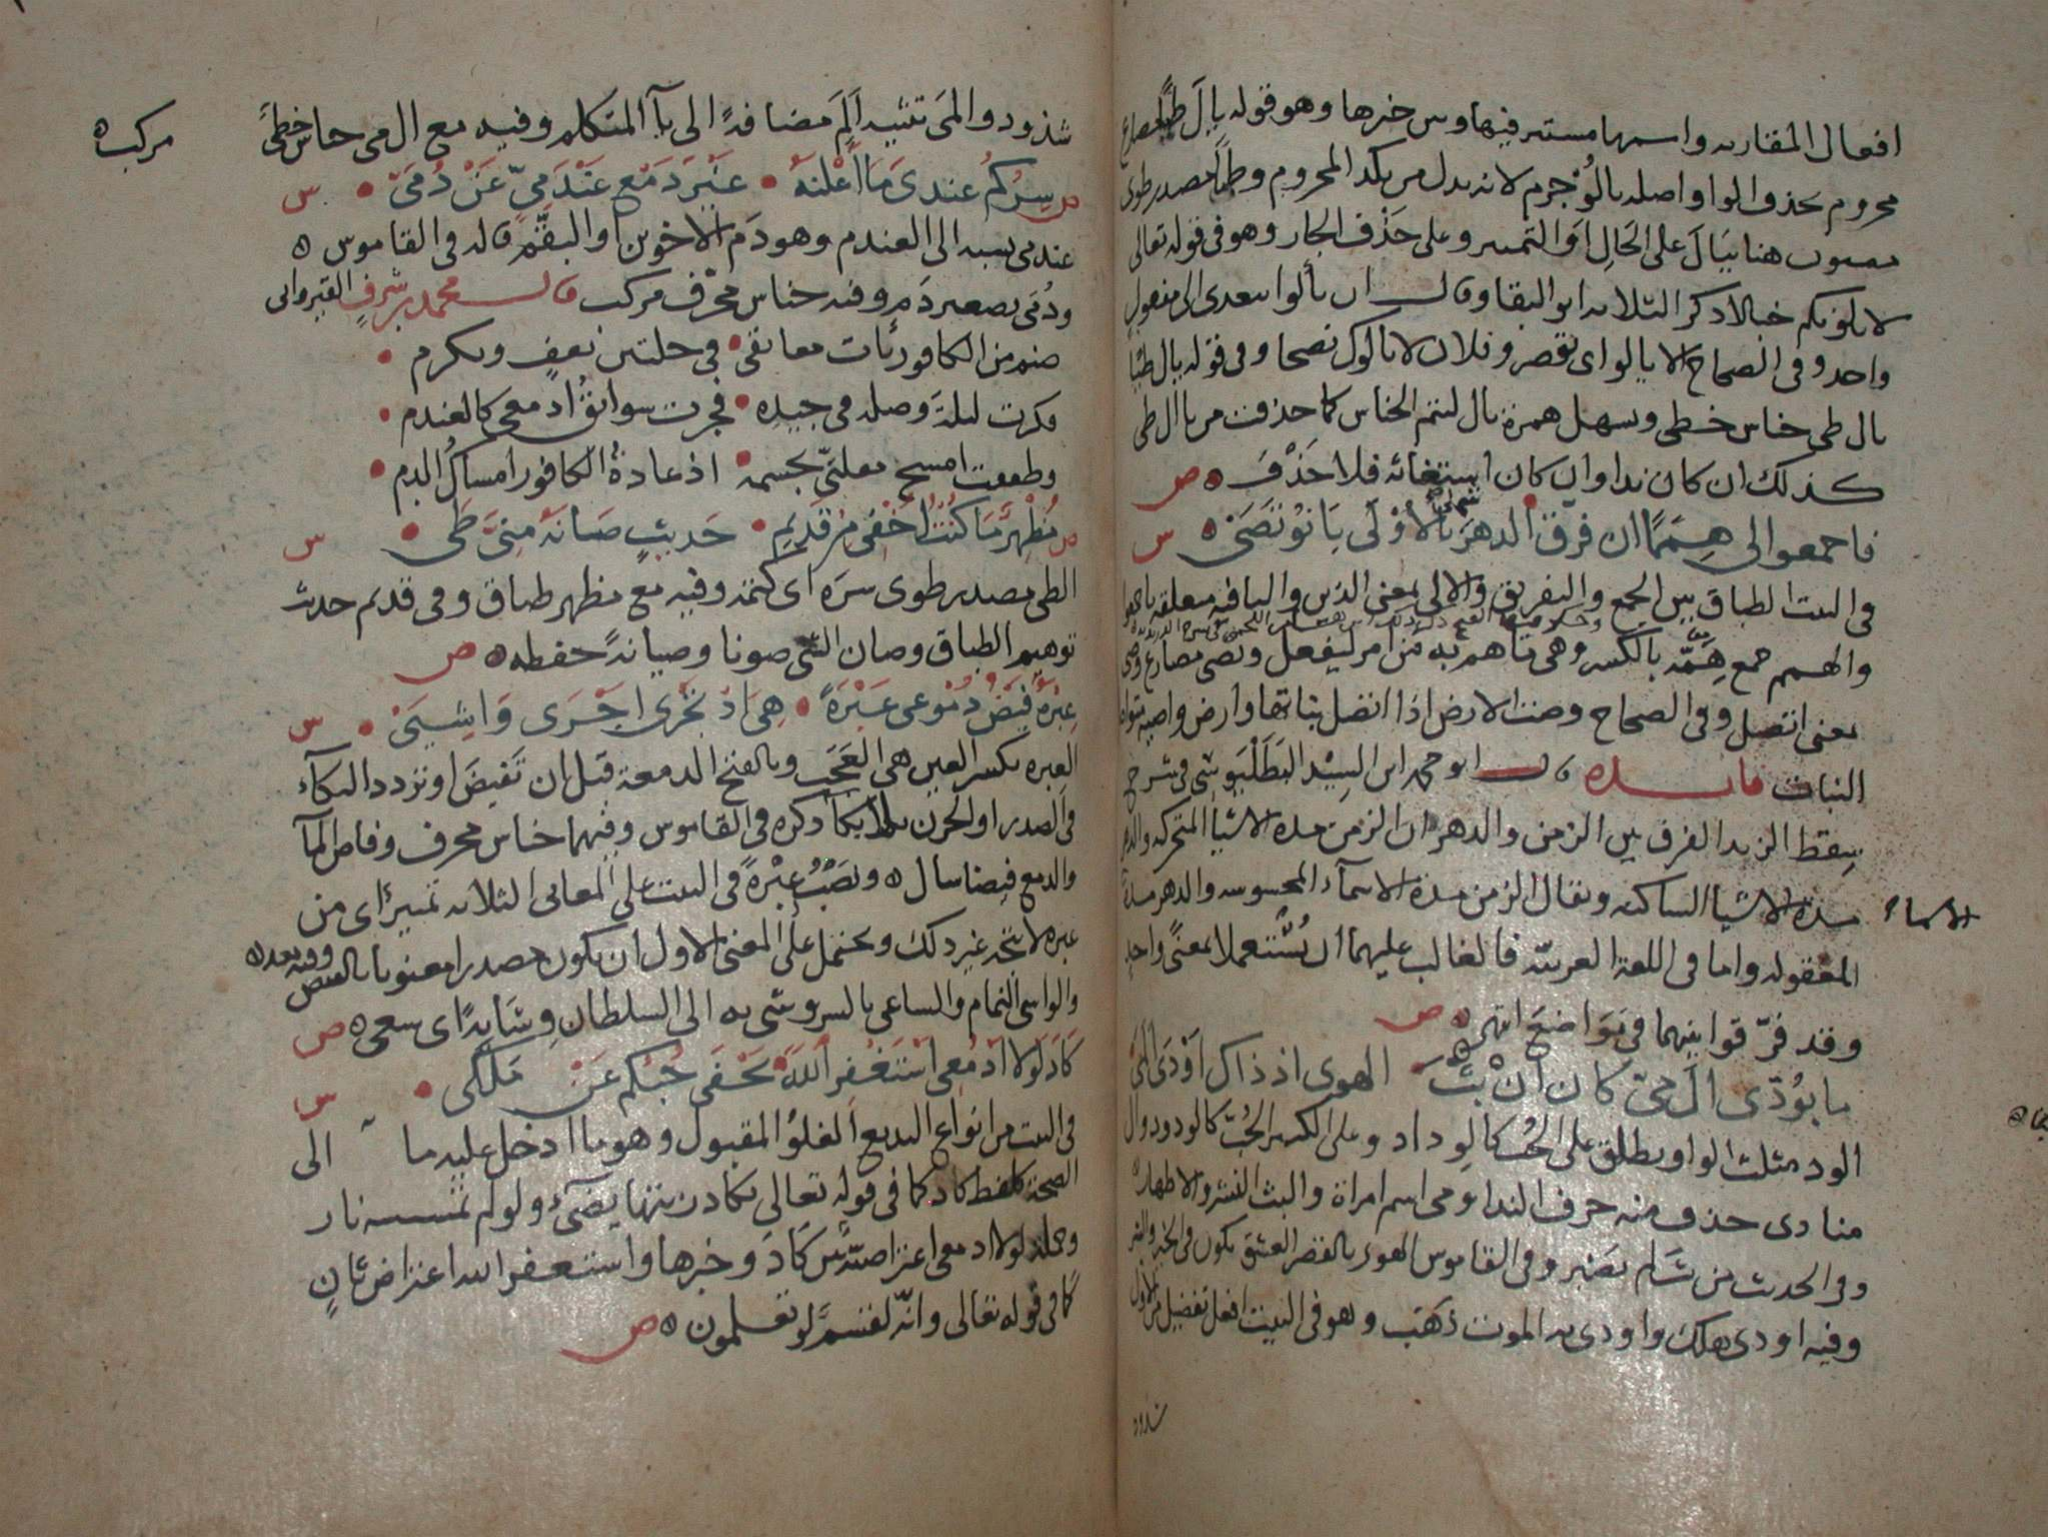 افعال المقاربه واسمها مستتر فيها وس خبرها وهو قوله يال طيا
محروم بحذف الواو اصله يالو جزم لانه بدل من يكد المحروم وطيا مصدر طوى
هنا بيال على الحال او التمييز وعلى حذف الجار وهو فى قوله تعالى
لا يالونكم خبالا ذكر الثلاثه ابو البقا وقال ان يألوا يتعدى الى مفعول
واحد وفى الصحاح الا يالو اى يقصر وفلان لا يالوك نصحا وفى قوله يال طيا
يال طى جناس خطى وسهل همزة يال ليتم الجناس كما حذفت من يا ال طى
كذلك ان كان ندا وان كان استغاثه فلا حذف ه ص
فاجمعوا لى همما ان فرق الدهر شملى بالاولى بانوا قصى ه س
فى البيت الطباق بين الجمع والتفريق والالى بمعنى الذين والبا فيه متعلقه باجمعوا
والهمم جمع همه بالكسر وهى ما هم به من امر ليفعل وتصى مضارع وصى
بمعنى اتصل وفى الصحاح وصت الارض اذا اتصل نباتها وارض واصيه متواصلة
النبات فايده قال ابو محمد ابن السيد البطليوسى فى شرح
سقط الزند الفرق بين الزمن والدهر ان الزمن مدة الاشيا المتحركه والدهر
مدة الاشيا الساكنه ويقال الزمن مدة الاسمآء المحسوسه والدهر مدة
الاسماء
المعقوله واما فى اللغة العربيه فالغالب عليهما ان يستعملا بمعنى واحد
وقد فرقوا بينهما فى مواضع انتهى ه ص
ما بودى ال مى كان ان بث الهوى اذ ذاك اودى المى
الود مثلث الواو يطلق على الحب كالوداد وعلى الكثير الحب كالودود وال
منادى حذف منه حرف الندا ومى اسم امراة والبث النشر والاظهار
وفى الحديث من بث لم يصبر وفى القاموس الهوى بالقصر العشق يكون فى الخير والشر
وفيه اودى هلك واودى به الموت ذهب وهو فى البيت افعل تفضيل من الاول
شذود
شذود والمى تثنيه الم مضافة الى يآ المتكلم وفيه مع ال مى جناس خطى
مركب ه
ص سركم عندى ما اعلنه • غير دمع عندمى عن دمى • س
عندمى نسبه الى العندم وهو دم الاخوين او البقم قاله فى القاموس ه
ودمى تصغير دم وفيه جناس محرف مركب قال محمد بن شرف القيروانى
صنم من الكافور بات معانقى • فى حلتين تعفف وتكرم •
فكرت ليلة وصله فى جيده • فجرت سوابق ادمعى كالعندم •
وطفقت امسح مقلتى بجسمه • اذ عادة الكافور امساك الدم •
ص مظهر ما كنت اخفى من قديم • حديث صانه منى طى • س
الطى مصدر طوى سره اى كتمه وفيه مع مظهر طباق وفى قديم حديث
توهيم الطباق وصان الشى صونا وصيانة حفظه ه ص
عبرة فيض دموعى عبرة • هى اذ تجرى اجرى واشيى • س
العبره بكسر العين هى العجب وبالفتح الدمعة قبل ان تفيض او تردد البكآء
فى الصدر او الحزن بلا بكا ذكره فى القاموس وفيهما جناس محرف وفاض المآ
والدمع فيضا سال ه ونصب عبرة فى البيت على المعانى الثلاثه تمييز اى من
عبره لا تتجه غير ذلك ويحتمل على المعنى الاول ان يكون مصدرا معنويا بالفيض وفيه بعد ه
والواشى النمام والساعى بالسر وشى به الى السلطان وشاية اى سعى ه ص
كاد لولا ادمعى استغفر الله يخفى حبكم عن ملكى • س
فى البيت من انواع البديع الغلو المقبول وهو ما ادخل عليه ما الى
الصحة كلفظ كاد كما فى قوله تعالى يكاد زيتها يضىء ولو لم تمسسه نار
وجملة لولا ادمعى اعتراضية بين كاد وخبرها واستغفر الله اعتراض ثان
كما فى قوله تعالى وانه لقسم لو تعلمون ه ص